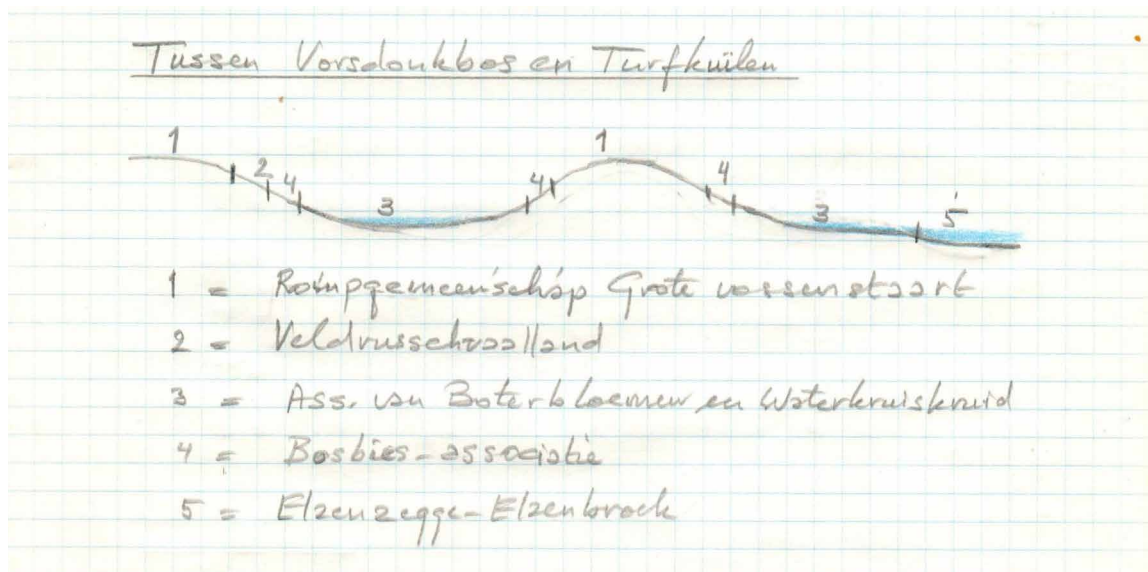 Tussen Vorsdonkbos en Turfkuilen
1 2 4 3 4 1 4 3 5
1 = Rompgemeenschap Grote vossenstaart
2 = Veldrusschraalland
3 = Ass. van Boterbloemen en Waterkruiskruid
4 = Bosbies-associatie
5 = Elzenzegge-Elzenbroek